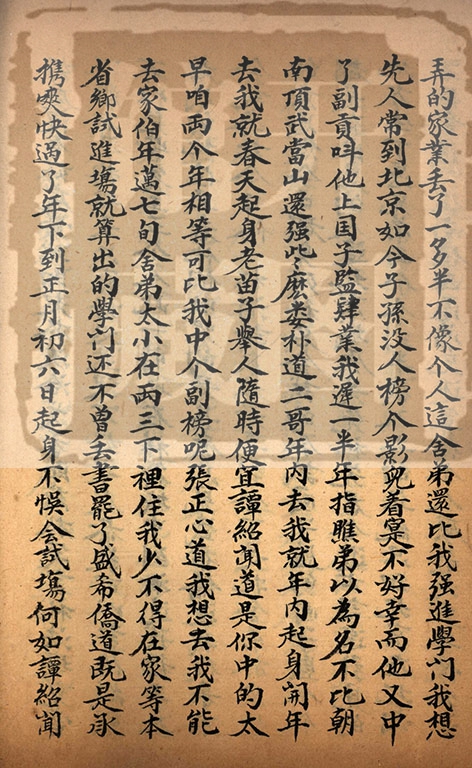 弄的家業丢了一多半不像个人這舍弟還比我强進學門我想
先人常到北京如今子孫没人榜个影兒着寔不好幸而他又中
了副貢呌他上国子監肄業我遲一半年指瞧弟以為名不比朝
南頂武當山還强些麽婁朴道二哥年内去我就年内起身開年
去我就春天起身老苗子舉人隨時便宜譚紹闻道是你中的太
早咱両个年相等可比我中个副榜呢張正心道我想去我不能
去家伯年邁七旬舍弟太小在両三下裡住我少不得在家等本
省鄉試進塲就算出的學门还不曾丢書罷了盛希僑道既是承
携爽快過了年下到正月初六日起身不悮会試塲何如譚紹闻